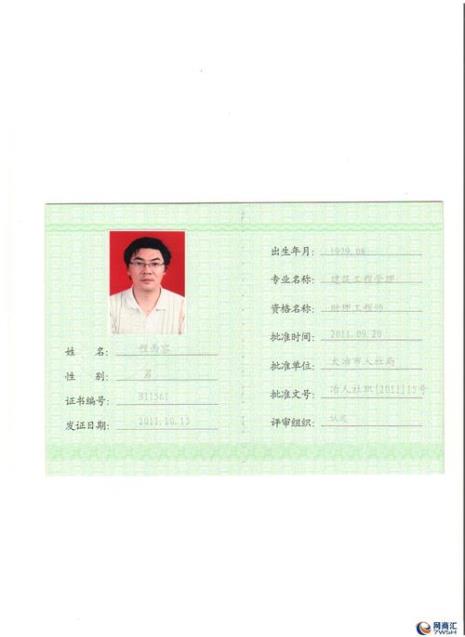 姓 名:
性 别: 男
证书编号: B11561
发证日期: 2011.10.13
出生年月: 1979.08
专业名称: 建筑工程管理
资格名称: 助理工程师
批准时间: 2011.09.20
批准单位: 大冶市人社局
批准文号: 冶人社职[2011]15号
评审组织: 认定
网商汇
7WSH